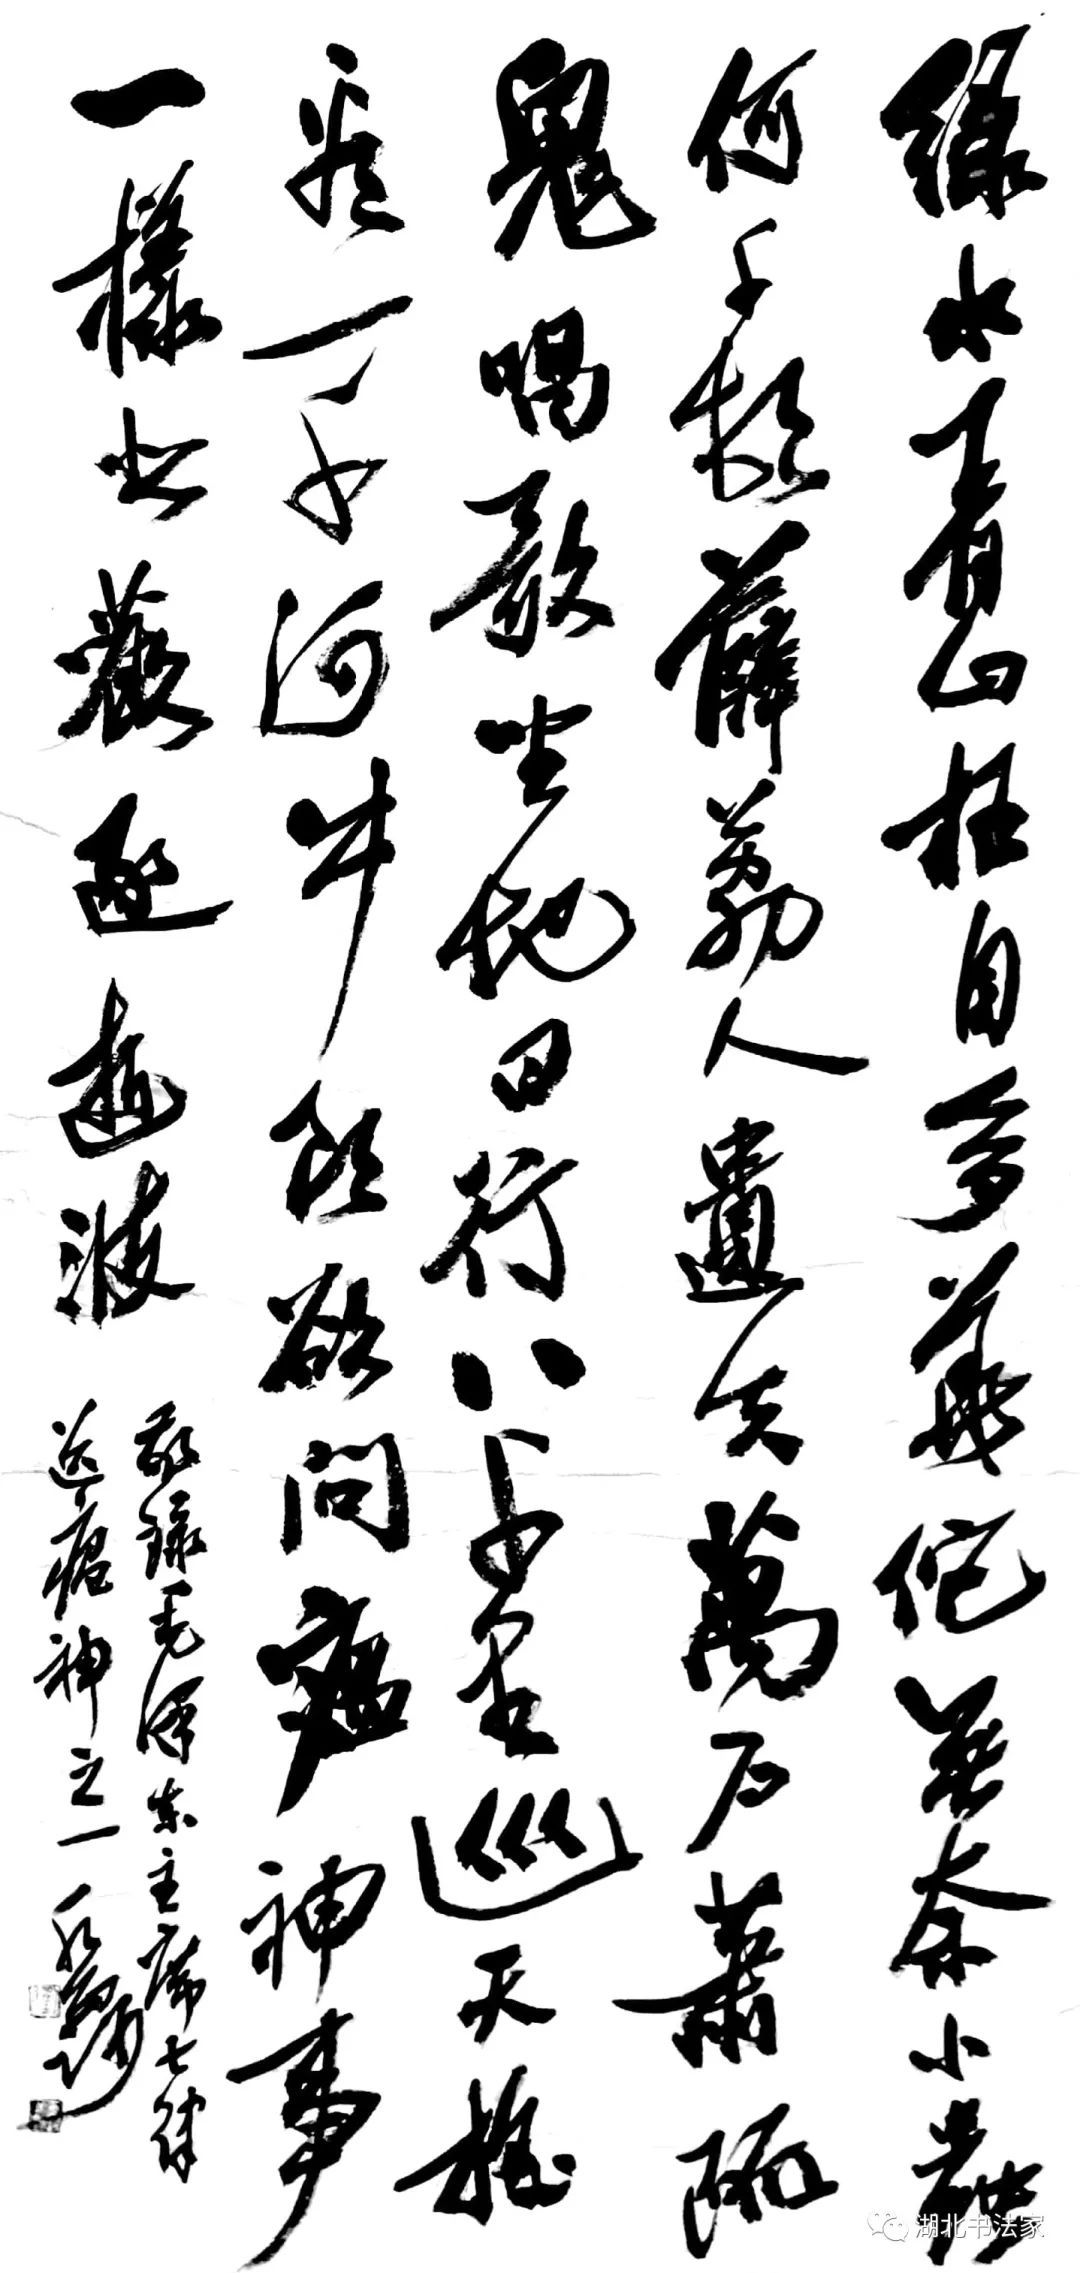 綠水青山枉自多華佗無奈小蟲
何千村薜荔人遺失萬戶蕭疏
鬼唱歌坐地日行八千里巡天搖
看一千河牛郎欲問瘟神事
一樣悲歡逐逝波
敬錄毛澤東主席七律
送瘟神之一
湖北书法家